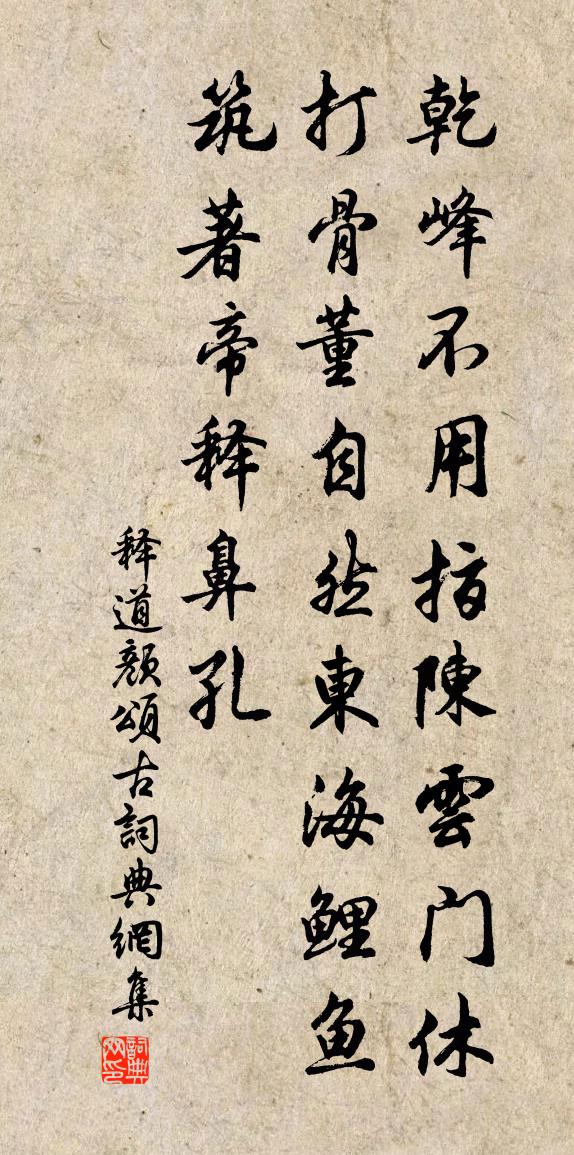 乾峰不用指陳雲门休
打骨董自然東海鯉魚
筑著帝释鼻孔
释道顏頌古詞典網集
詞典网印